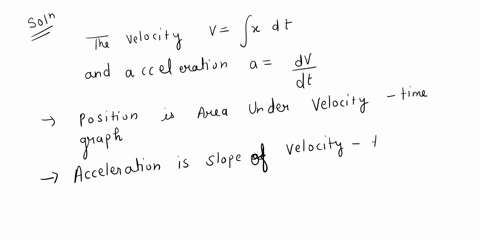 Solⁿ
The velocity V = ∫x dt
and acceleration a = dV/dt
→ Position is Area Under Velocity - time
graph
→ Acceleration is slope of Velocity - t